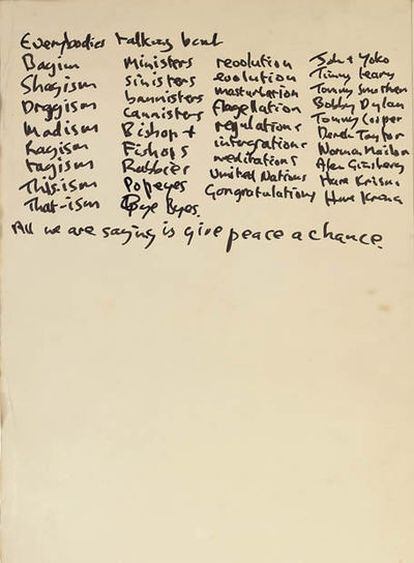 Everybodies talking bout
Bagism
Shagism
Dragism
Madism
Ragism
Tagism
This-ism
That-ism
Ministers
Sinisters
bannisters
Cannisters
Bishop +
Fishops
Rabbies
Popeyes
Bye Byes.
revolution
evolution
masturbation
flagellation
regulations
integrations
meditations
United Nations
Congratulations
John + Yoko
Timmy Leary
Tommy Smothers
Bobby Dylan
Tommy Cooper
Derek Taylor
Norman Mailer
Alen Ginsberg
Hare Krisna
Hare
All we are saying is give peace a chance.